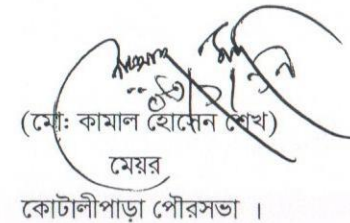 (মো: কামাল হোসেন শেখ)
মেয়র
কোটালীপাড়া পৌরসভা ।